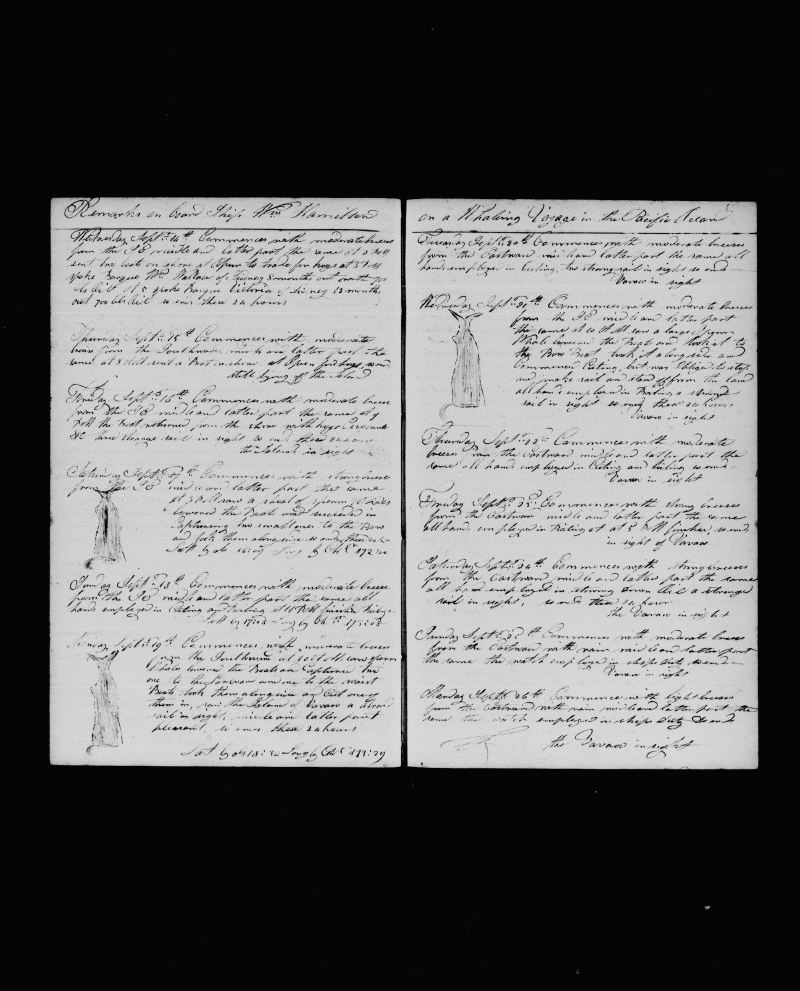 Remarks on board Ship Wm Hamilton
Wednesday Sept 14th Commences with moderate breeses
from the SE midle and latter part the same at 3 PM
sent one boat on shore at Opun to trade for hogs at 3 PM
spoke Barque Wm Wallace of Sidney 8 months out
at 5 spoke Barque Victoria of Sidney 12 months
out 700 bbls so ends these 24 hours
Thursday Sept 15th Commences with moderate
breeses from the Southward midle and latter part the
same at 3 AM sent a boat on shore at Opun
still lying off the Island
Friday Sept 16th Commences with moderate breeses
from the SE midle and latter part the same at 9
AM the boat returned from the shore with hogs Cocoanuts
&C three strange sail in sight so ends these 24 hours
the Island in sight
Saturday Sept 17th Commences with strong breeses
from the SE midle and latter part the same
at 3 PM saw a school of sperm Whales
lowered the Boats and succeeded in
Capturing two small ones to the Bow
and took them alongside so ends these 24
Latt by ob 16:09 Long by Chr 172:00
Sunday Sept 18th Commences with moderate breeses
from the SE midle and latter part the same all
hands employed in Cuting and Boiling at 11 PM finished
Latt by 17:08 Long by Chr 173:05
Monday Sept 19th Commences with moderate breeses
from the Southward at 10 AM saw sperm
Whales lowered the Boats and Captured two
one to the Larboard and one to the waist
Boats took them alongside and Cut one of
them in, saw the Island of Vavaoo a strange
sail in sight, midle and latter part
pleasant so ends these 24 hours
Lat by ob 18:30 Long by Chr 173:29
on a Whaleing Voyage in the Pacific Ocean
Tuesday Sept 20th Commences with moderate breeses
from the Eastward midle and latter part the same all
hands employed in Cuting, two strang sail in sight so ends
Vavao in sight
Wednesday Sept 21st Commences with moderate breeses
from the SE midle and latter part
the same at 10 AM saw a large Sperm
Whale lowered the Boats and struck it to
the Bow Boat took it alongside and
Commenced Cuting, but was obliged to stop
and make sail and stand off from the land
all hands employed in Boiling a strange
sail in sight so ends these 24 hours
Vavao in sight
Thursday Sept 22d Commences with moderate
breeses from the Eastward midle and latter part the
same all hands employed in Cuting and boiling so ends
Vavao in sight
Friday Sept 23d Commences with strong breeses
from the Eastward midle and latter part the same
all hands employed in Boiling at 5 PM finished so ends
in sight of Vavao
Saturday Sept 24th Commences with strong breeses
from the Eastward midle and latter part the same
all hands employed in stowing down Oil a strange
sail in sight, so ends these 24 hours
the Vavao in sight
Sunday Sept 25th Commences with moderate breeses
from the Eastward with rain midle and latter part
the same the watch employed in ships duty so ends
Vavao in sight
Monday Sept 26th Commences with light breeses
from the Eastward with rain midle and latter part the
same the watch employed in ships Duty so ends
the Vavao in sight